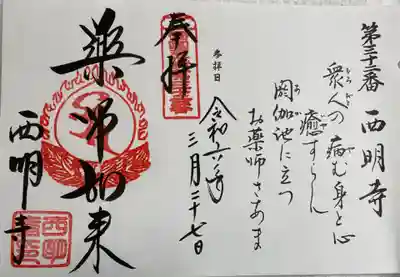 第三十二番 西明寺
衆人の 病む身と心
もろびと
癒すらん
閼伽池に立つ
お薬師さあま
参拝日
令和六年
三月二十七日
奉拝
薬師如来
西明寺